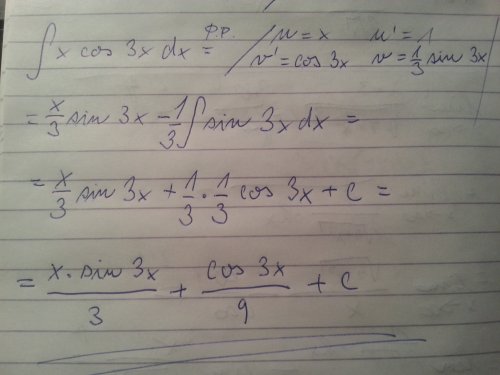 ∫ x cos 3x dx = p.p. / u = x u' = 1
v' = cos 3x v = 1/3 sin 3x /
= x/3 sin 3x - 1/3 ∫ sin 3x dx =
= x/3 sin 3x + 1/3 · 1/3 cos 3x + c =
= x · sin 3x / 3 + cos 3x / 9 + c